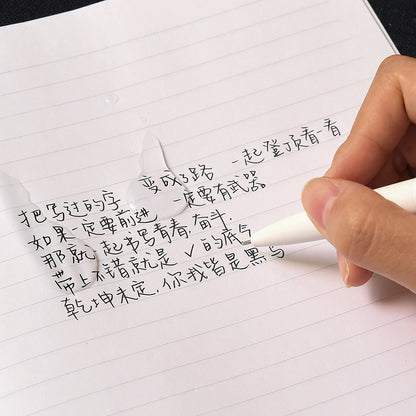 把写过的字 变成了路 一起登顶看一看
如果一定要前进 一定要有武器。
那就一起书写青春,奋斗.
带上不错就是 ✓ 的底气
乾坤未定,你我皆是黑马